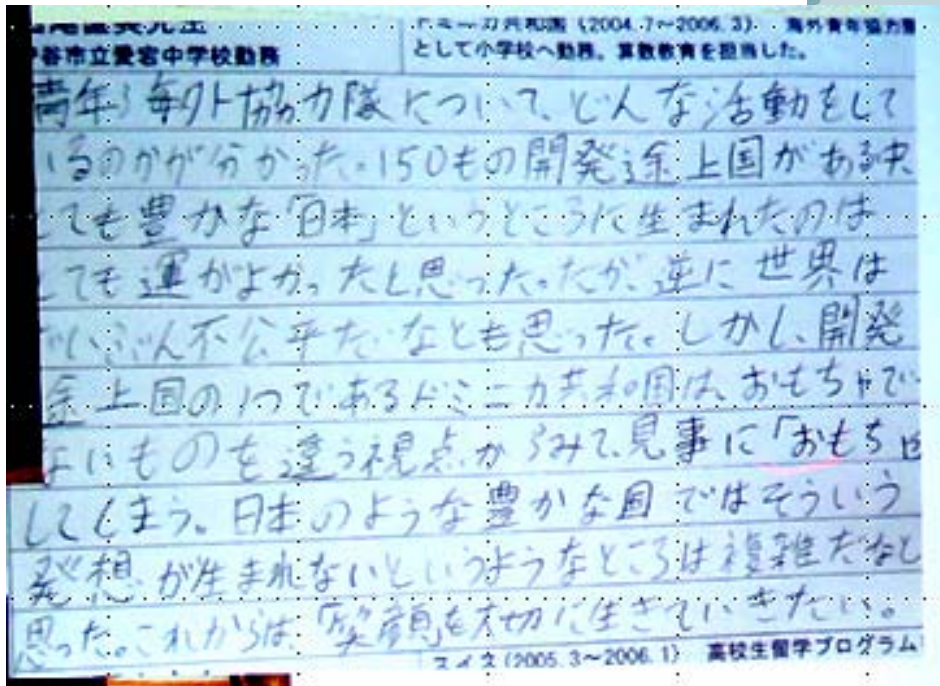 ドミニカ共和国 (2004.7～2006.3). 海外青年協力隊
谷市立愛宕中学校勤務
として小学校へ勤務。算数教育を担当した。
青年海外協力隊について、どんな活動をして
いるのかが分かった。150もの開発途上国がある中
とても豊かな「日本」というところに生まれたのは
とても運がよかったと思った。だが、逆に世界は
ずいぶん不公平だなとも思った。しかし、開発
途上国の1つであるドミニカ共和国は、おもちゃで
ないものを違う視点からみて、見事に「おもち
してしまう。日本のような豊かな国ではそういう
発想が生まれないというようなところは複雑だなと
思った。これからは、「笑顔」を大切に生きていきたい。
スイス (2005.3～2006.1) 高校生留学プログラム